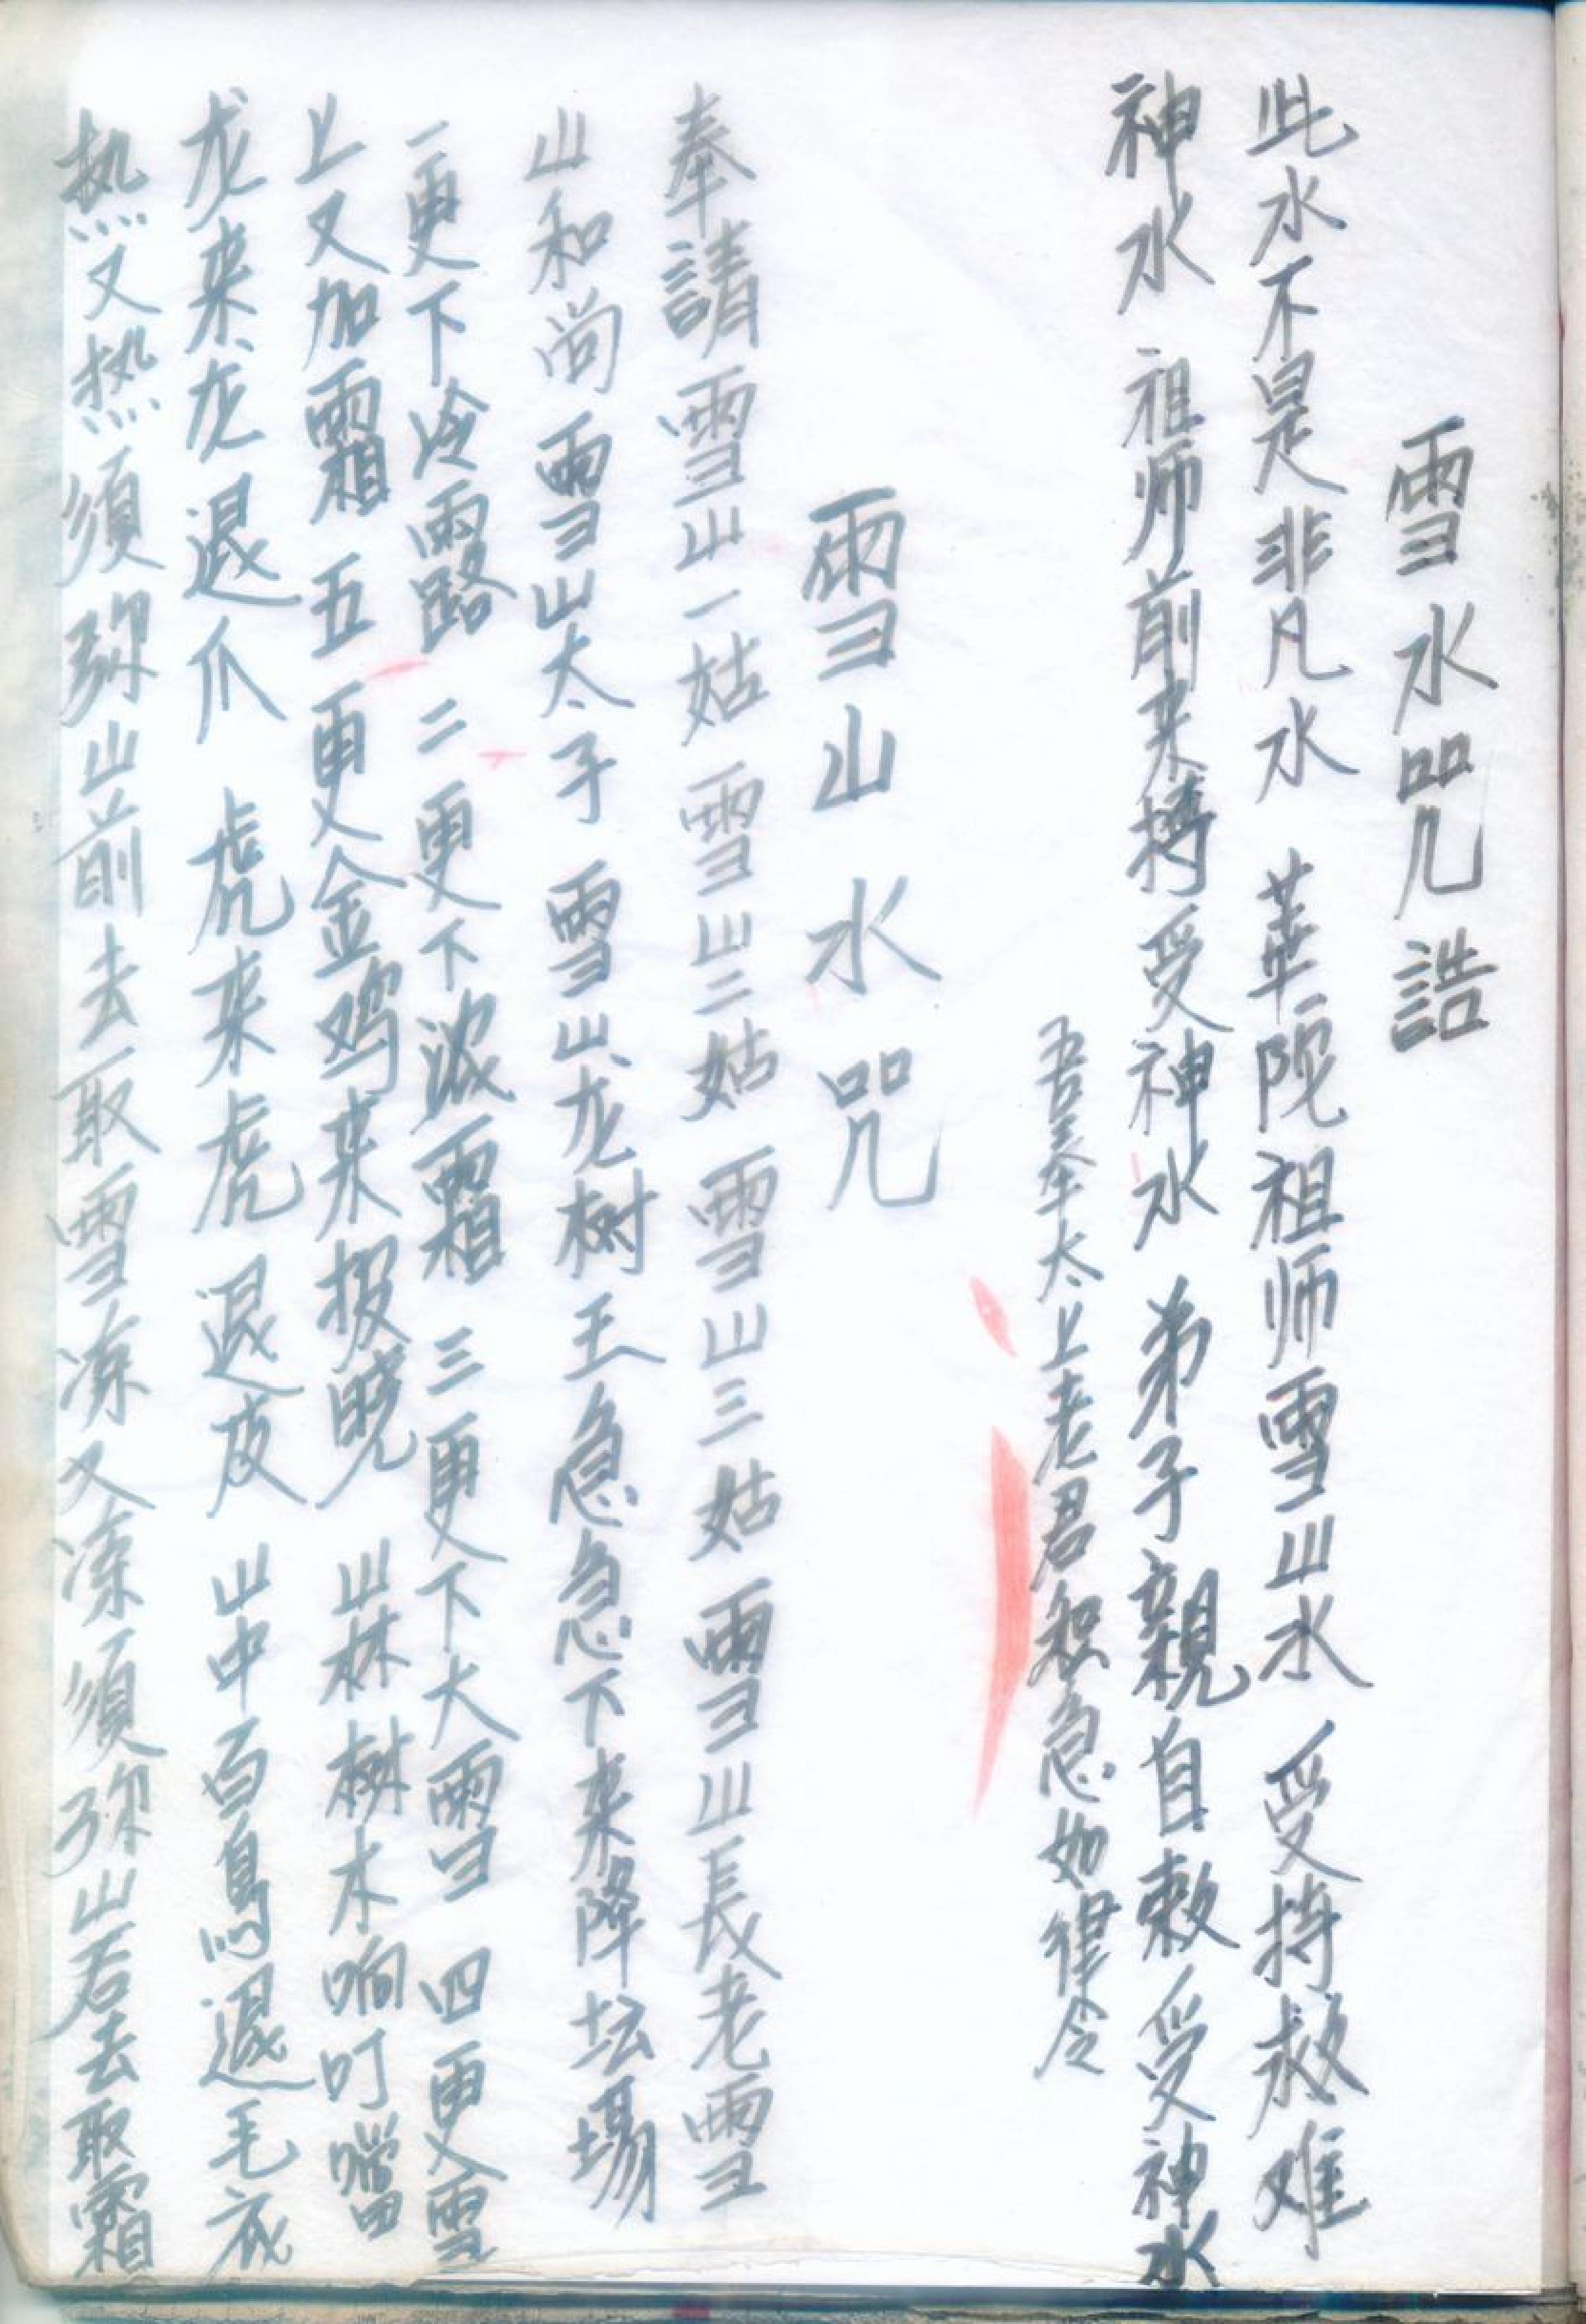 雪水咒誥
此水不是非凡水 華陀祖师雪山水 受持救难
神水 祖师前来持受神水 弟子親自敕受神水
吾奉太上老君 急如律令
雪山水咒
奉請雪山一姑 雪山二姑 雪山三姑 雪山長老雪
山和尚 雪山太子 雪山龙树王急急下来降坛場
一更下冷露 二更下浓霜 三更下大雪 四更雪
上又加霜 五更金鸡来报晓 山林树木响叮噹
龙来龙退爪 虎来虎退皮 山中百鳥退毛衣
热又热须弥山前去取雪凍又凍须弥山若去取霜